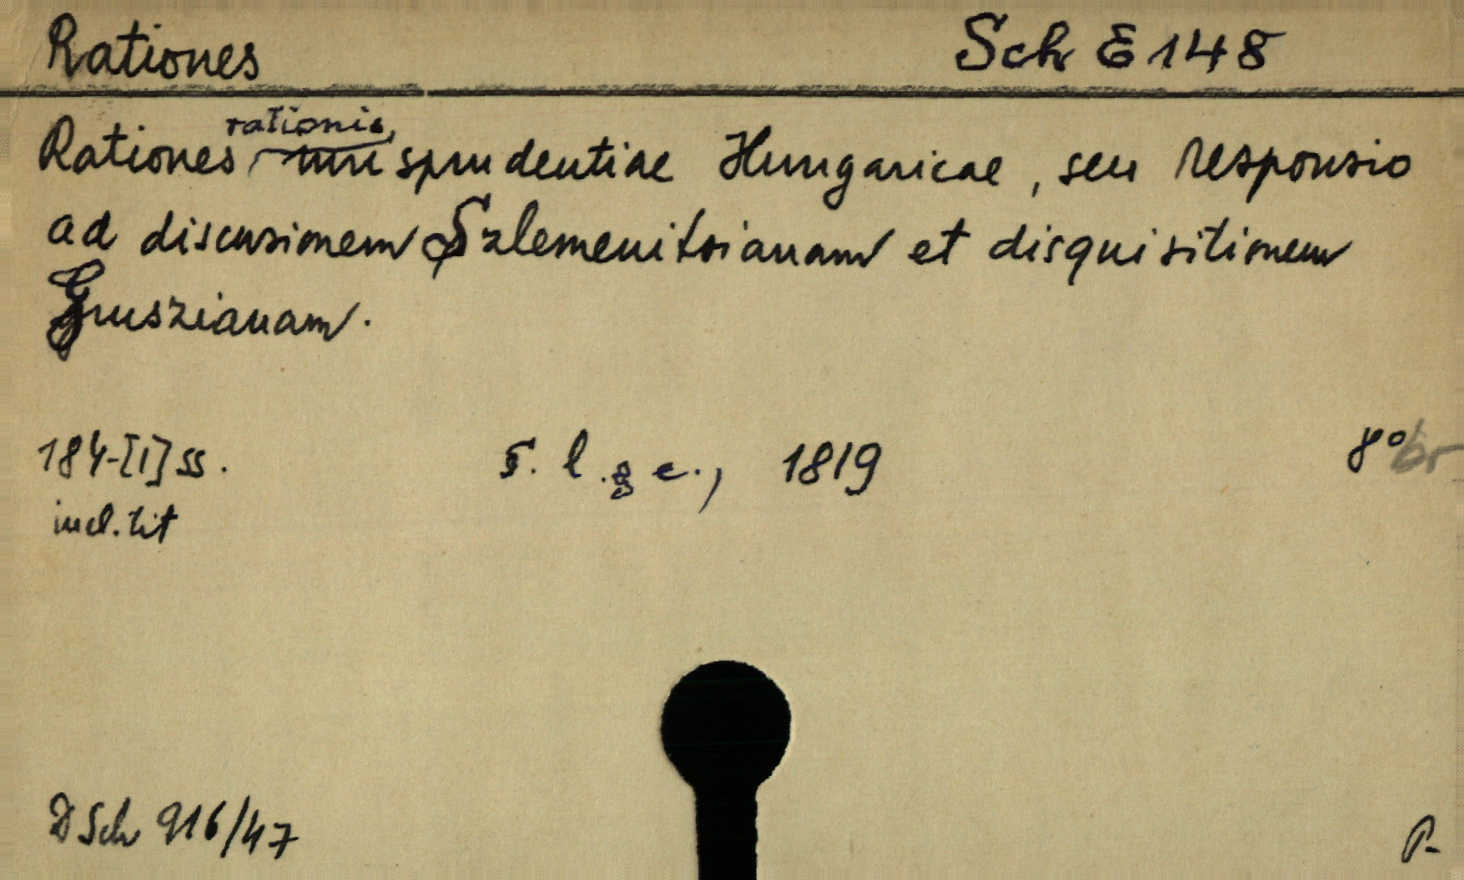 Rationes Sch E 148
rationis,
Rationes iurisprudentiae Hungaricae, seu responsio
ad discusionem Szlemenitsianam et disquisitionem
Gruszianam.
184-[1] ss. s. l. & e., 1819 8° br
incl. tit
D Sch 916/47 P.